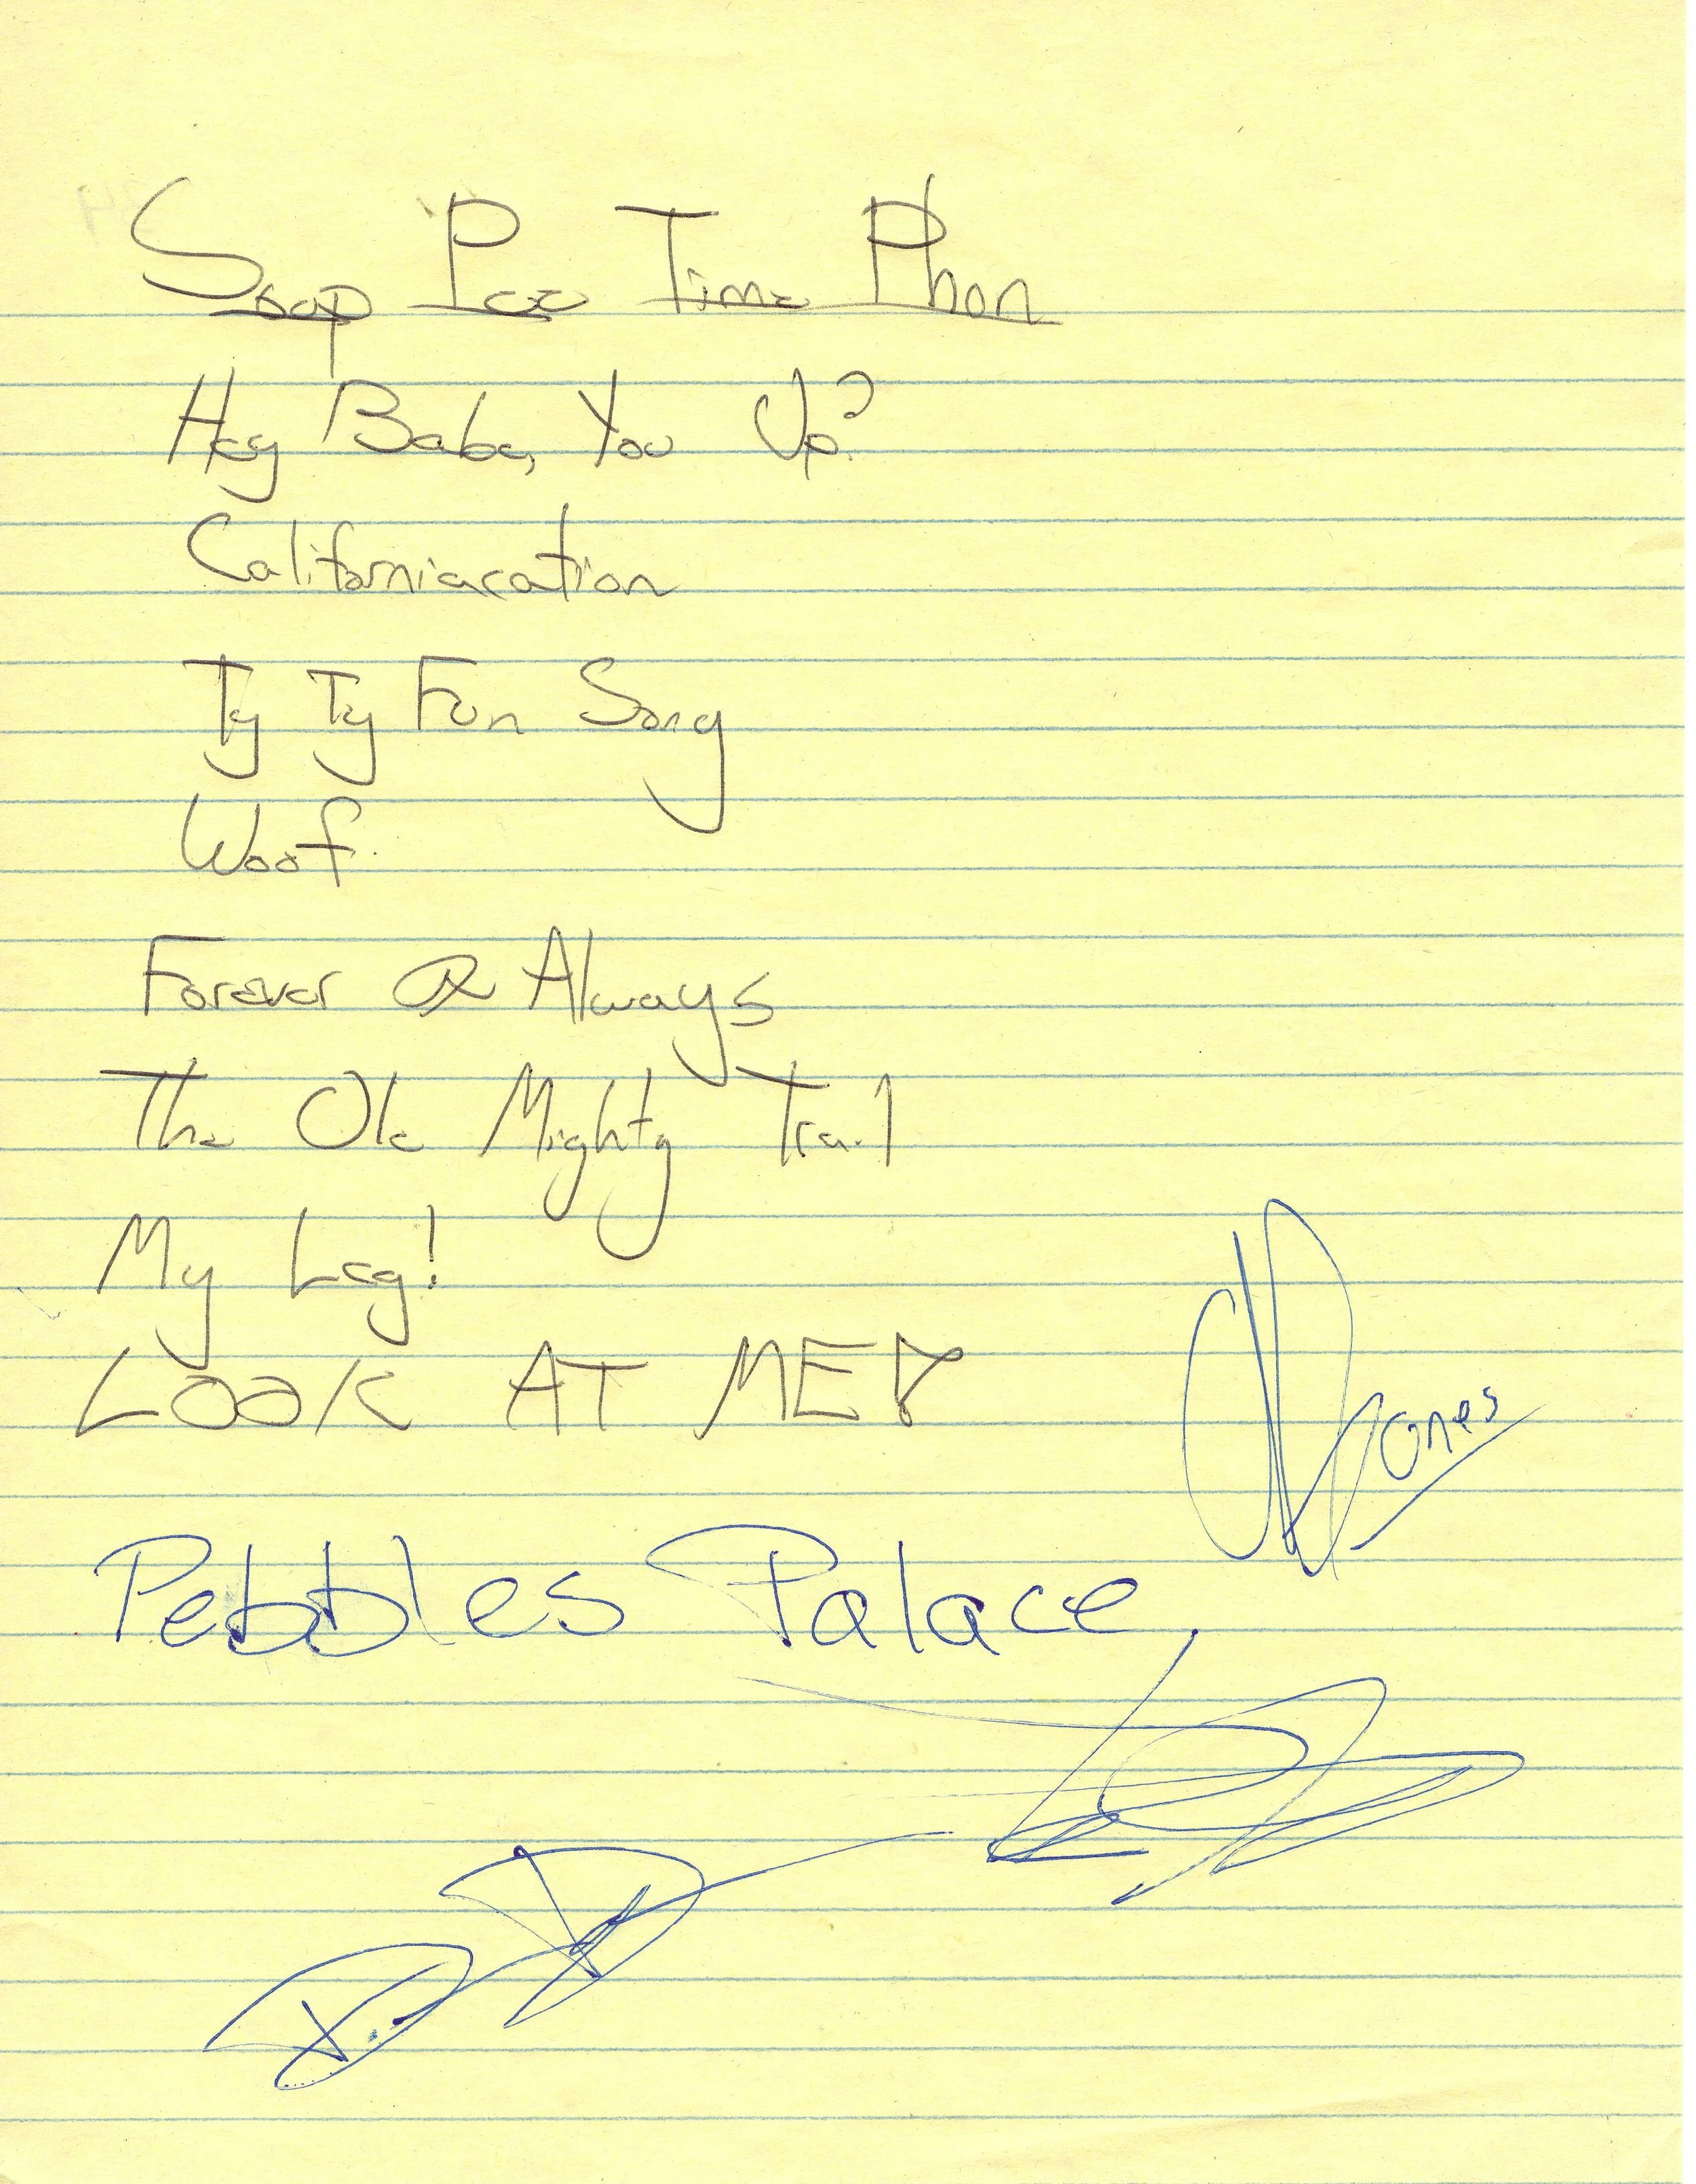 Soap Pee Time Phon
Hey Babe, You Up?
Californiacation
Ty Ty Fun Song
Woof
Forever & Always
The Ole Mighty Trail
My Leg!
LOOK AT ME!
Jones
Pebbles Palace